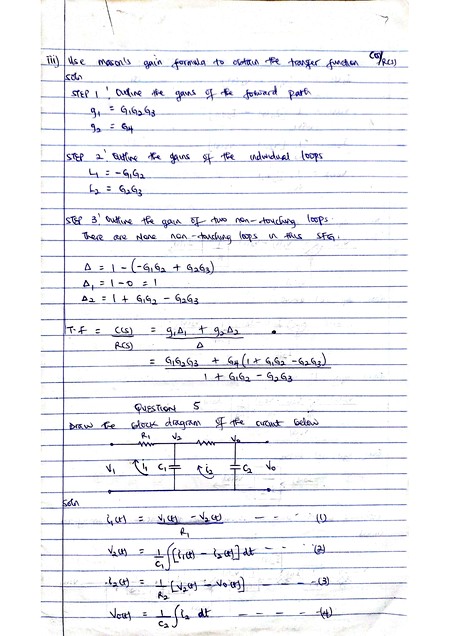 iii) Use mason's gain formula to obtain the transfer function C(s)/R(s)
soln
STEP 1: Outline the gains of the forward path
g₁ = G₁G₂G₃
g₂ = G₄
STEP 2: Outline the gains of the individual loops
L₁ = -G₁G₂
L₂ = G₂G₃
STEP 3: Outline the gain of two non-touching loops.
There are None non-touching loops in this SFG.
Δ = 1 - (-G₁G₂ + G₂G₃)
Δ₁ = 1 - 0 = 1
Δ2 = 1 + G₁G₂ - G₂G₃
T.F = C(s)/R(s) = (g₁Δ₁ + g₂Δ₂)/Δ
= (G₁G₂G₃ + G₄(1 + G₁G₂ - G₂G₃))/(1 + G₁G₂ - G₂G₃)
QUESTION 5
Draw the block diagram of the circuit below
R₁ V₂ V₀
V₁ i₁ C₁ i₂ C₂ V₀
soln
i₁(t) = (V₁(t) - V₂(t))/R₁ - - - - (1)
V₂(t) = 1/C₁ ∫[i₁(t) - i₂(t)] dt - - - (2)
i₂(t) = 1/R₂ [V₂(t) - V₀(t)] - - - - (3)
V₀(t) = 1/C₂ ∫ i₂ dt - - - - - (4)